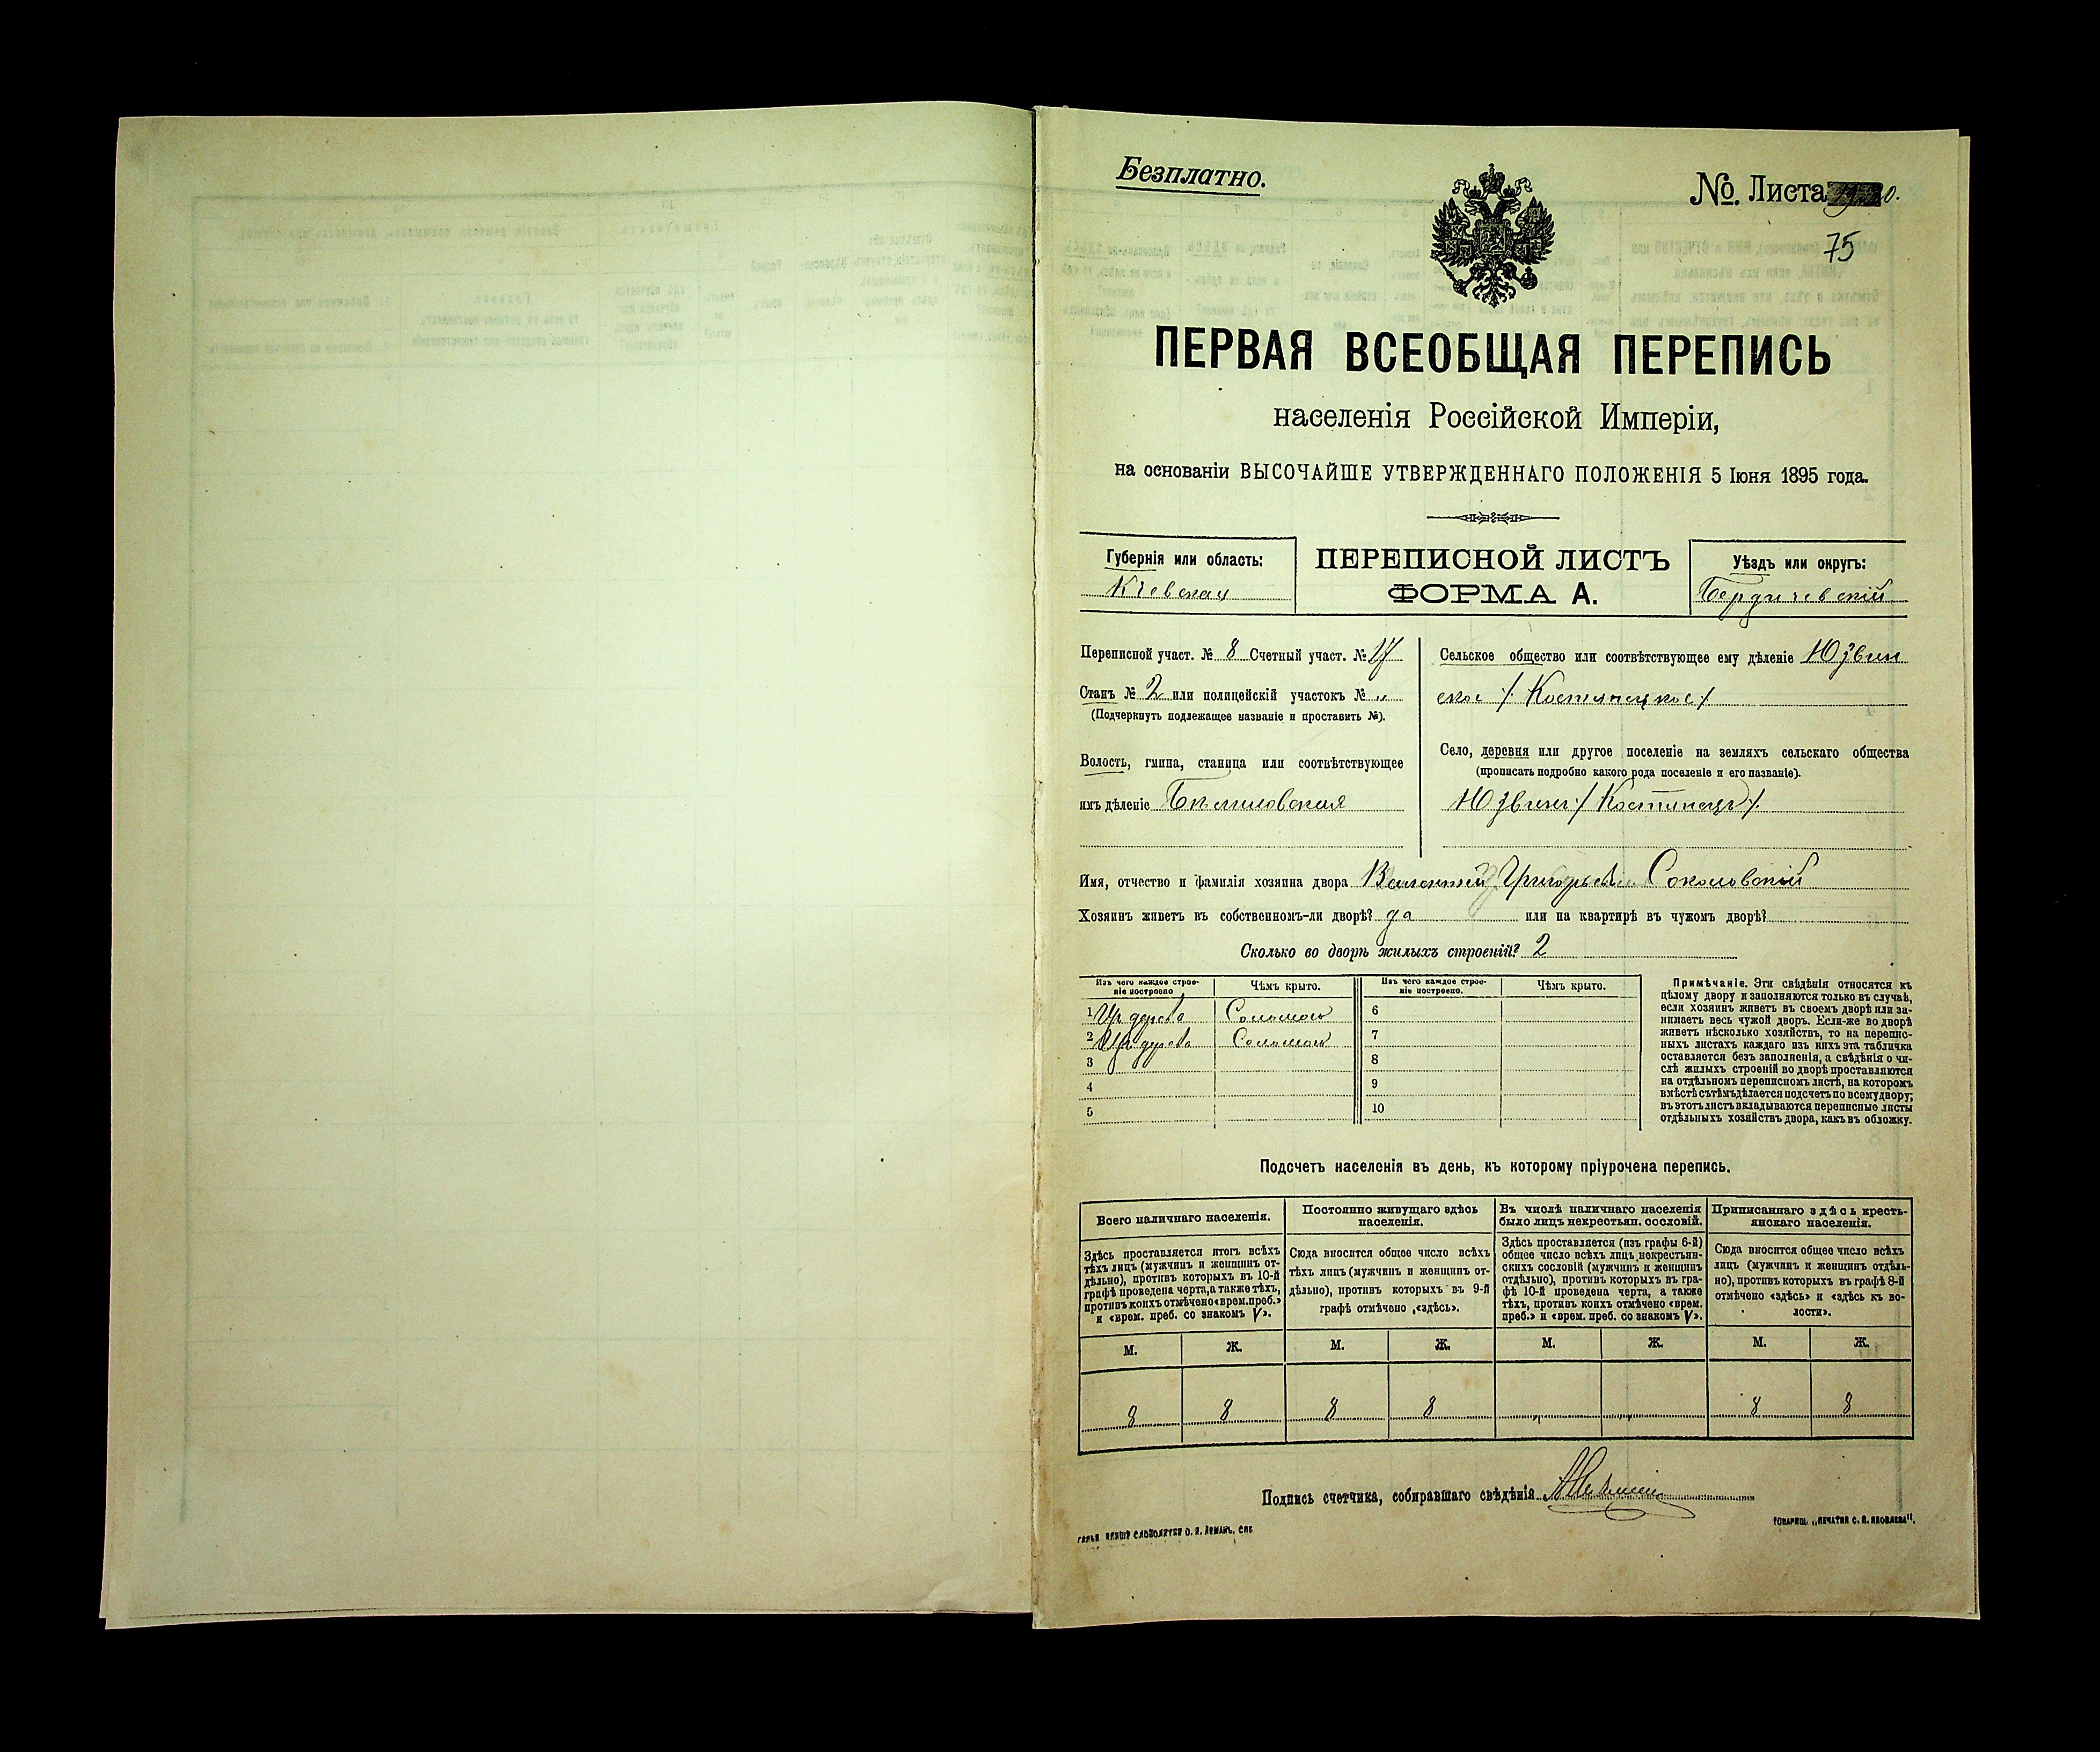 Безплатно.
№. Листа 20.
75
ПЕРВАЯ ВСЕОБЩАЯ ПЕРЕПИСЬ
населенія Россійской Имперіи,
на основаніи ВЫСОЧАЙШЕ УТВЕРЖДЕННАГО ПОЛОЖЕНІЯ 5 Іюня 1895 года.
Губернія или область:
Кіевская
ПЕРЕПИСНОЙ ЛИСТЪ
ФОРМА А.
Уѣздъ или округъ:
Бердичевскій
Переписной участ. № 8 Счетный участ. № 17
Станъ № 2 или полицейскій участокъ № „
(Подчеркнуть подлежащее названіе и проставить №).
Волость, гмина, станица или соотвѣтствующее
имъ дѣленіе
Сельское общество или соотвѣтствующее ему дѣленіе Юзвин
ское / Костинецкое /
Село, деревня или другое поселеніе на земляхъ сельскаго общества
(прописать подробно какого рода поселеніе и его названіе).
Юзвин / Костинецъ /.
Имя, отчество и фамилія хозяина двора Григорьев Соколовскій
Хозяинъ живетъ въ собственномъ-ли дворѣ? да или на квартирѣ въ чужомъ дворѣ?
Сколько во дворѣ жилыхъ строеній? 2
Изъ чего каждое строе-
ніе построено
Чѣмъ крыто.
Изъ чего каждое строе-
ніе построено.
Чѣмъ крыто.
1 Изъ дерева Соломою 6
2 Изъ дерева Соломою 7
3 8
4 9
5 10
Примѣчаніе. Эти свѣдѣнія относятся къ
цѣлому двору и заполняются только въ случаѣ,
если хозяинъ живетъ въ своемъ дворѣ или за-
нимаетъ весь чужой дворъ. Если-же во дворѣ
живетъ нѣсколько хозяйствъ, то на перепис-
ныхъ листахъ каждаго изъ нихъ эта табличка
оставляется безъ заполненія, а свѣдѣнія о чи-
слѣ жилыхъ строеній во дворѣ проставляются
на отдѣльномъ переписномъ листѣ, на которомъ
вмѣстѣ съ тѣмъ дѣлается подсчетъ по всему двору;
въ этотъ листъ вкладываются переписные листы
отдѣльныхъ хозяйствъ двора, какъ въ обложку.
Подсчетъ населенія въ день, къ которому пріурочена перепись.
Всего наличнаго населенія.
Здѣсь проставляется итогъ всѣхъ
тѣхъ лицъ (мужчинъ и женщинъ от-
дѣльно), противъ которыхъ въ 10-й
графѣ проведена черта, а также тѣхъ,
противъ коихъ отмѣчено «врем. преб.»
и «врем. преб. со знакомъ V».
Постоянно живущаго здѣсь
населенія.
Сюда вносится общее число всѣхъ
тѣхъ лицъ (мужчинъ и женщинъ от-
дѣльно), противъ которыхъ въ 9-й
графѣ отмѣчено «здѣсь».
Въ числѣ наличнаго населенія
было лицъ некрестьян. сословій.
Здѣсь проставляется (изъ графы 6-й)
общее число всѣхъ лицъ некрестьян-
скихъ сословій (мужчинъ и женщинъ
отдѣльно), противъ которыхъ въ гра-
фѣ 10-й проведена черта, а также
тѣхъ, противъ коихъ отмѣчено «врем.
преб.» и «врем. преб. со знакомъ V».
Приписаннаго здѣсь кресть-
янскаго населенія.
Сюда вносится общее число всѣхъ
лицъ (мужчинъ и женщинъ отдѣль-
но), противъ которыхъ въ графѣ 8-й
отмѣчено «здѣсь» и «здѣсь къ во-
лости».
М. Ж. М. Ж. М. Ж. М. Ж.
8 8 8 8 „ „ 8 8
Подпись счетчика, собиравшаго свѣдѣнія
СЛОВОЛИТНЯ О. И. ЛЕМАНЪ, СПБ
ТОВАРИЩ. „ПЕЧАТНЯ С. П. ЯКОВЛЕВА".